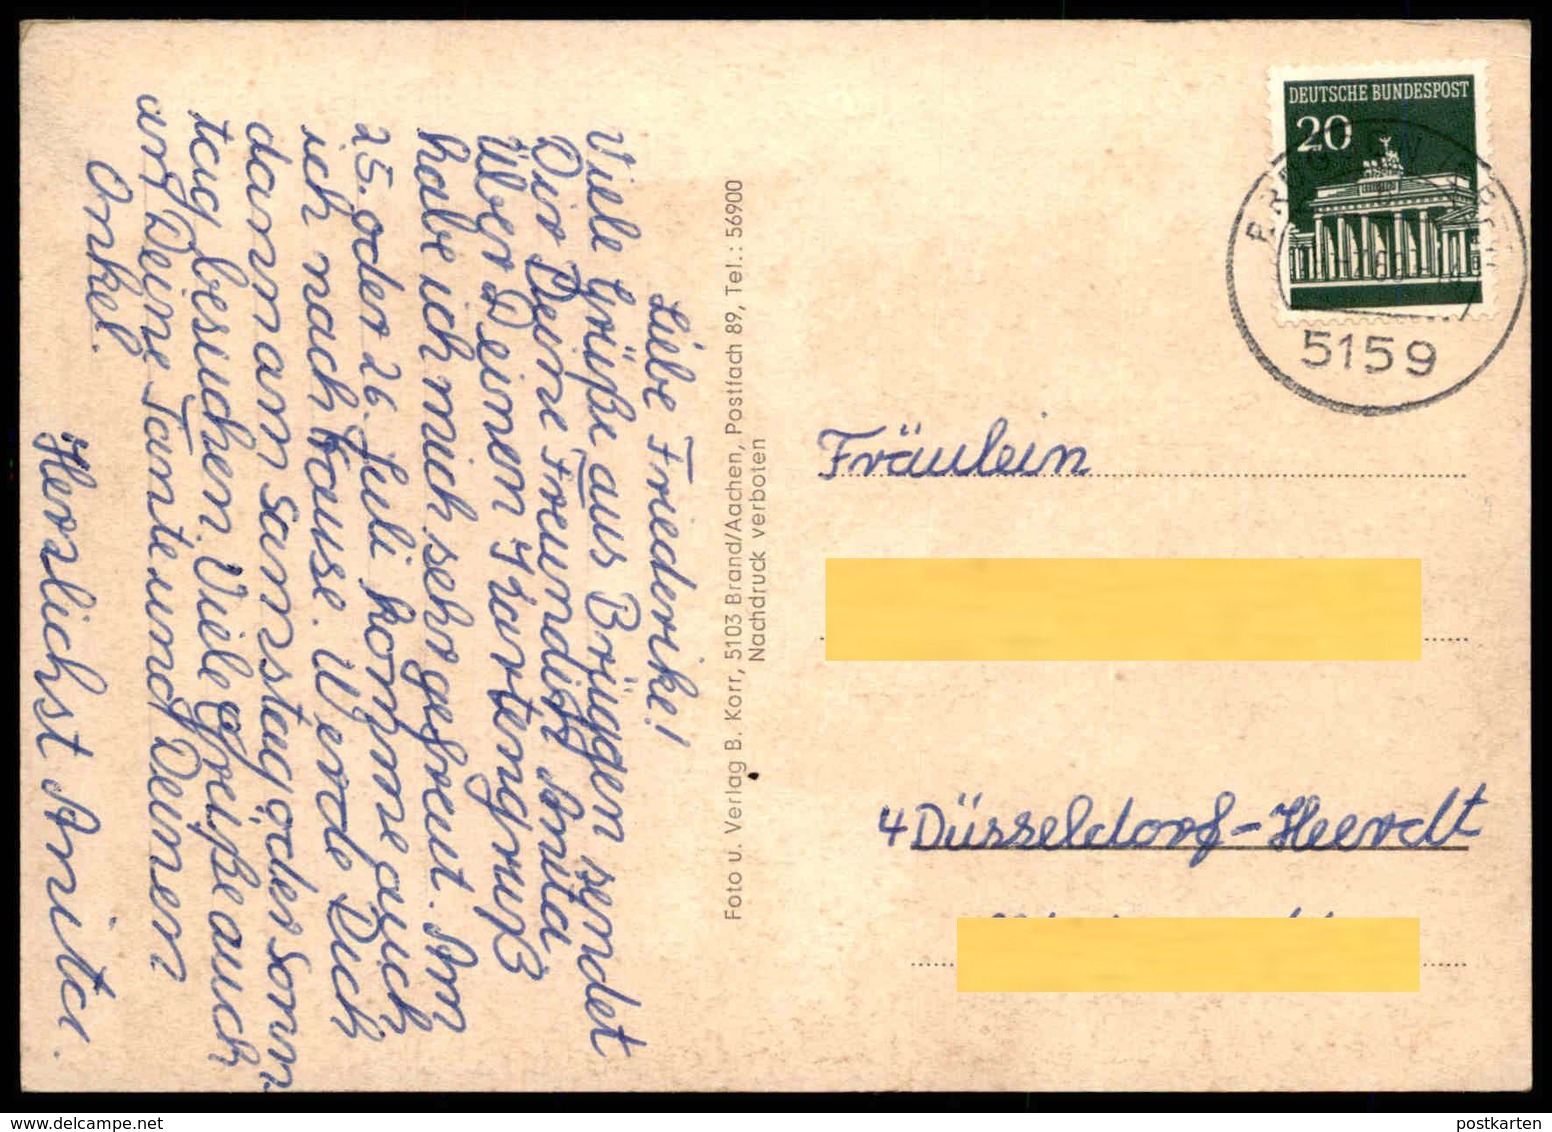 Liebe Friederike!
Viele Grüße aus Brüggen sendet
Dir Deine Freundin Anita
Über Deinen Kartengruß
habe ich mich sehr gefreut. Am
25. oder 26. Juli komme auch
ich nach Hause. Werde Dich
dann am Samstag oder Sonn-
tag besuchen. Viele Grüße auch
an Deine Tante und Deinen
Onkel.
Herzlichst Anita.
Foto u. Verlag B. Korr, 5103 Brand/Aachen, Postfach 89, Tel.: 56900
Nachdruck verboten
DEUTSCHE BUNDESPOST
20
5159
Fräulein
4 Düsseldorf-Heerdt
postkarten